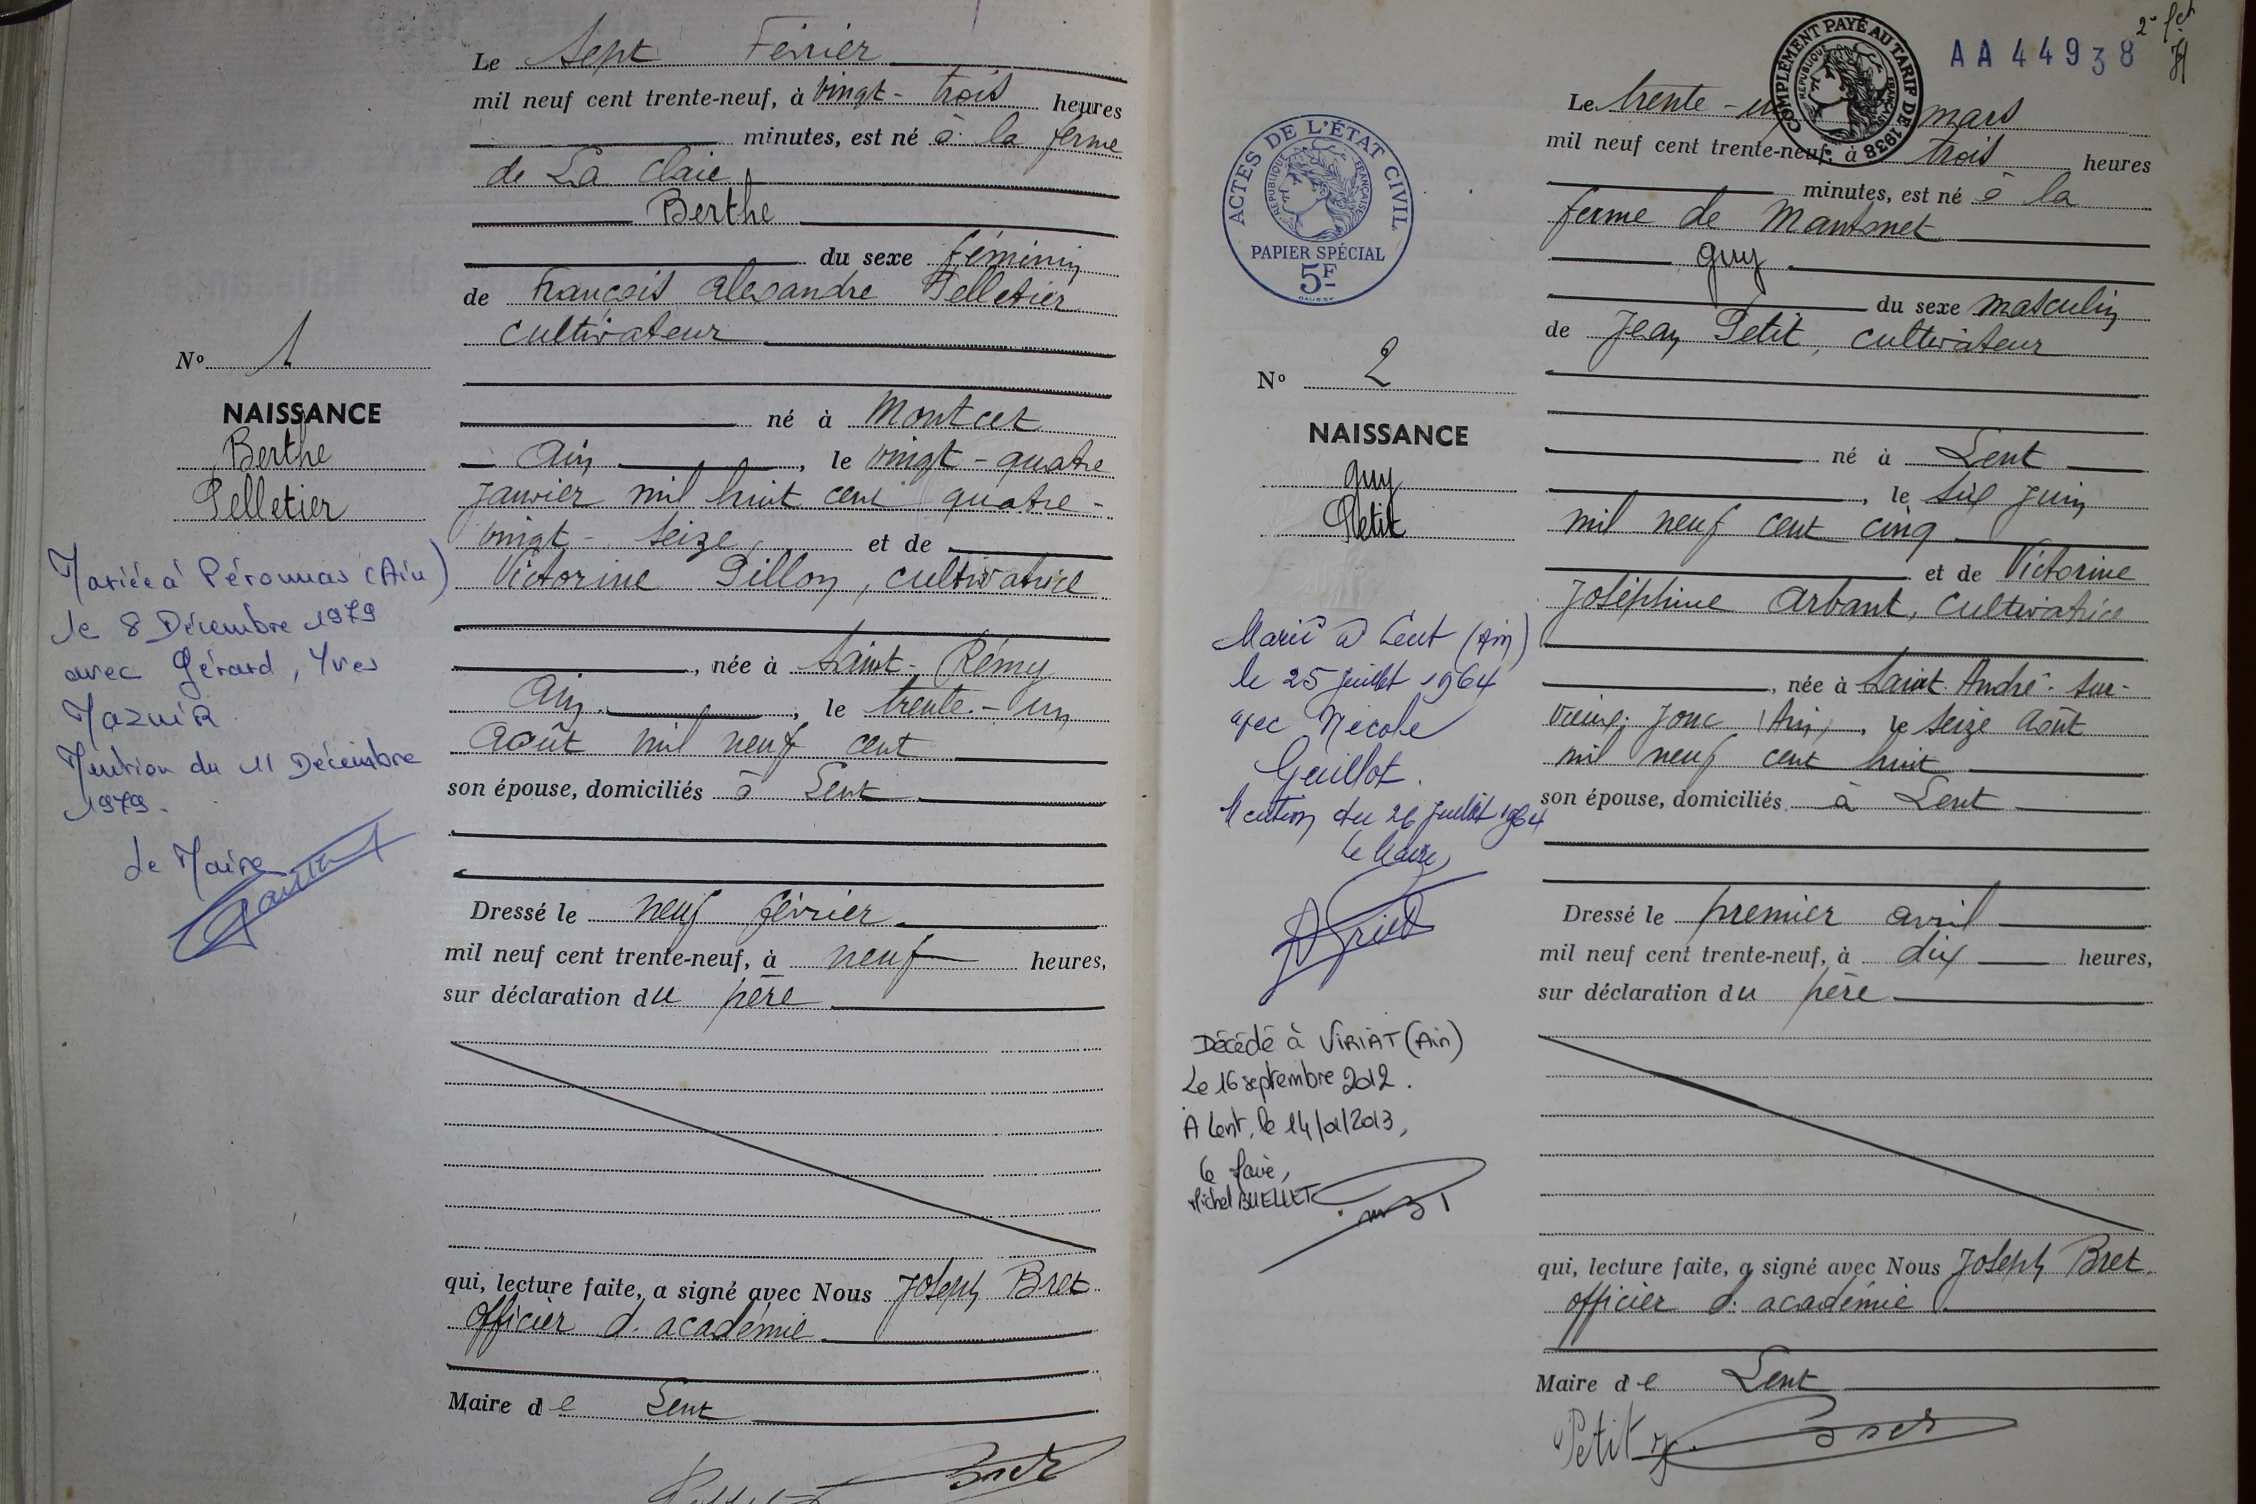 Le sept Février
mil neuf cent trente-neuf, à vingt-trois heures
minutes, est né à la ferme
de La Claie
Berthe
du sexe féminin
de François Alexandre Pelletier
cultivateur
né à Montcet
Ain, le vingt-quatre
janvier mil huit cent quatre-
vingt-seize et de
Victorine Pillon, cultivatrice
, née à Saint-Rémy
Ain, le trente-un
Août mil neuf cent
son épouse, domiciliés à Lent
Dressé le neuf février
mil neuf cent trente-neuf, à neuf heures,
sur déclaration du père
qui, lecture faite, a signé avec Nous Joseph Bret
officier d'académie
Maire de Lent
Bret
No 1
NAISSANCE
Berthe
Pelletier
Mariée à Péronnas (Ain)
le 8 Décembre 1979
avec Gérard, Yves
Mention du 11 Décembre
1979.
Le Maire
2
AA 44938
COMPLÉMENT PAYÉ AU TARIF DE 1938
RÉPUBLIQUE FRANÇAISE
ACTES DE L'ÉTAT CIVIL
RÉPUBLIQUE FRANÇAISE
PAPIER SPÉCIAL
5F
Le trente-un mars
mil neuf cent trente-neuf, à trois heures
minutes, est né à la
ferme de Mantonet
guy
du sexe masculin
de Jean Petit, cultivateur
né à Lent
, le six juin
mil neuf cent cinq
et de Victorine
Joséphine Arbant, cultivatrice
, née à Saint André-sur-
Vieux-Jonc (Ain), le seize Août
mil neuf cent huit
son épouse, domiciliés à Lent
Dressé le premier avril
mil neuf cent trente-neuf, à dix heures,
sur déclaration du père
qui, lecture faite, a signé avec Nous Joseph Bret
officier d'académie
Maire de Lent
Petit J. Bret
No 2
NAISSANCE
guy
Petit
Marié à Lent (Ain)
le 25 juillet 1964
avec Nicole
Guillot.
Mention du 26 juillet 1964
Le Maire,
Décédé à VIRIAT (Ain)
Le 16 septembre 2012.
A Lent, le 14/01/2013,
Le Maire,
Michel BUELLET